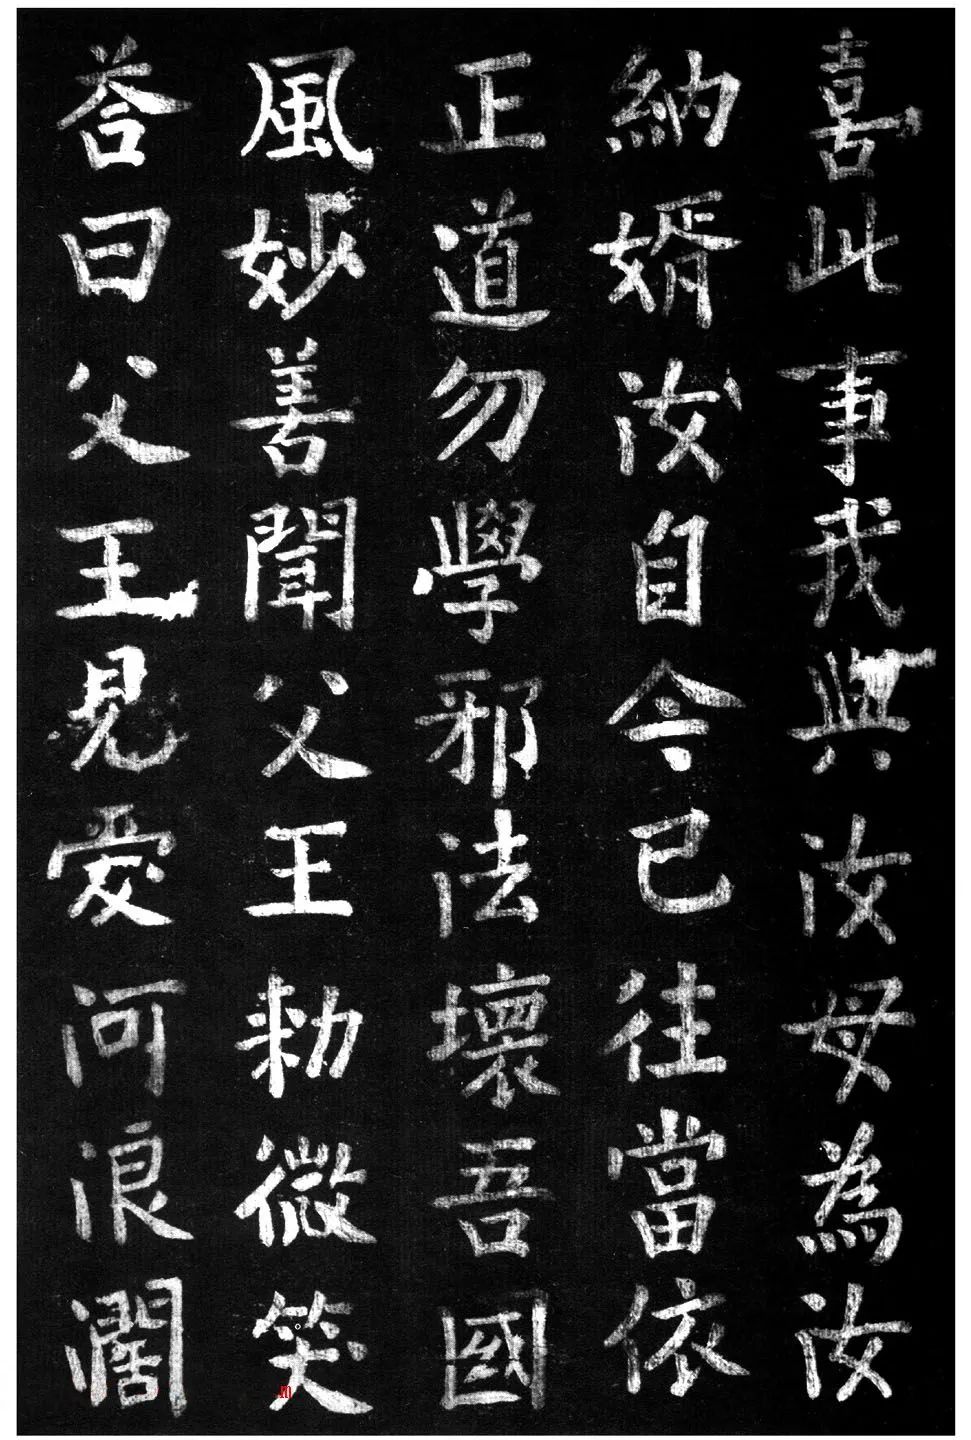 喜此事我與汝母為汝
納婿汝自今已往當依
正道勿學邪法壞吾國
風妙善聞父王勑微笑
荅曰父王見愛何浪濶